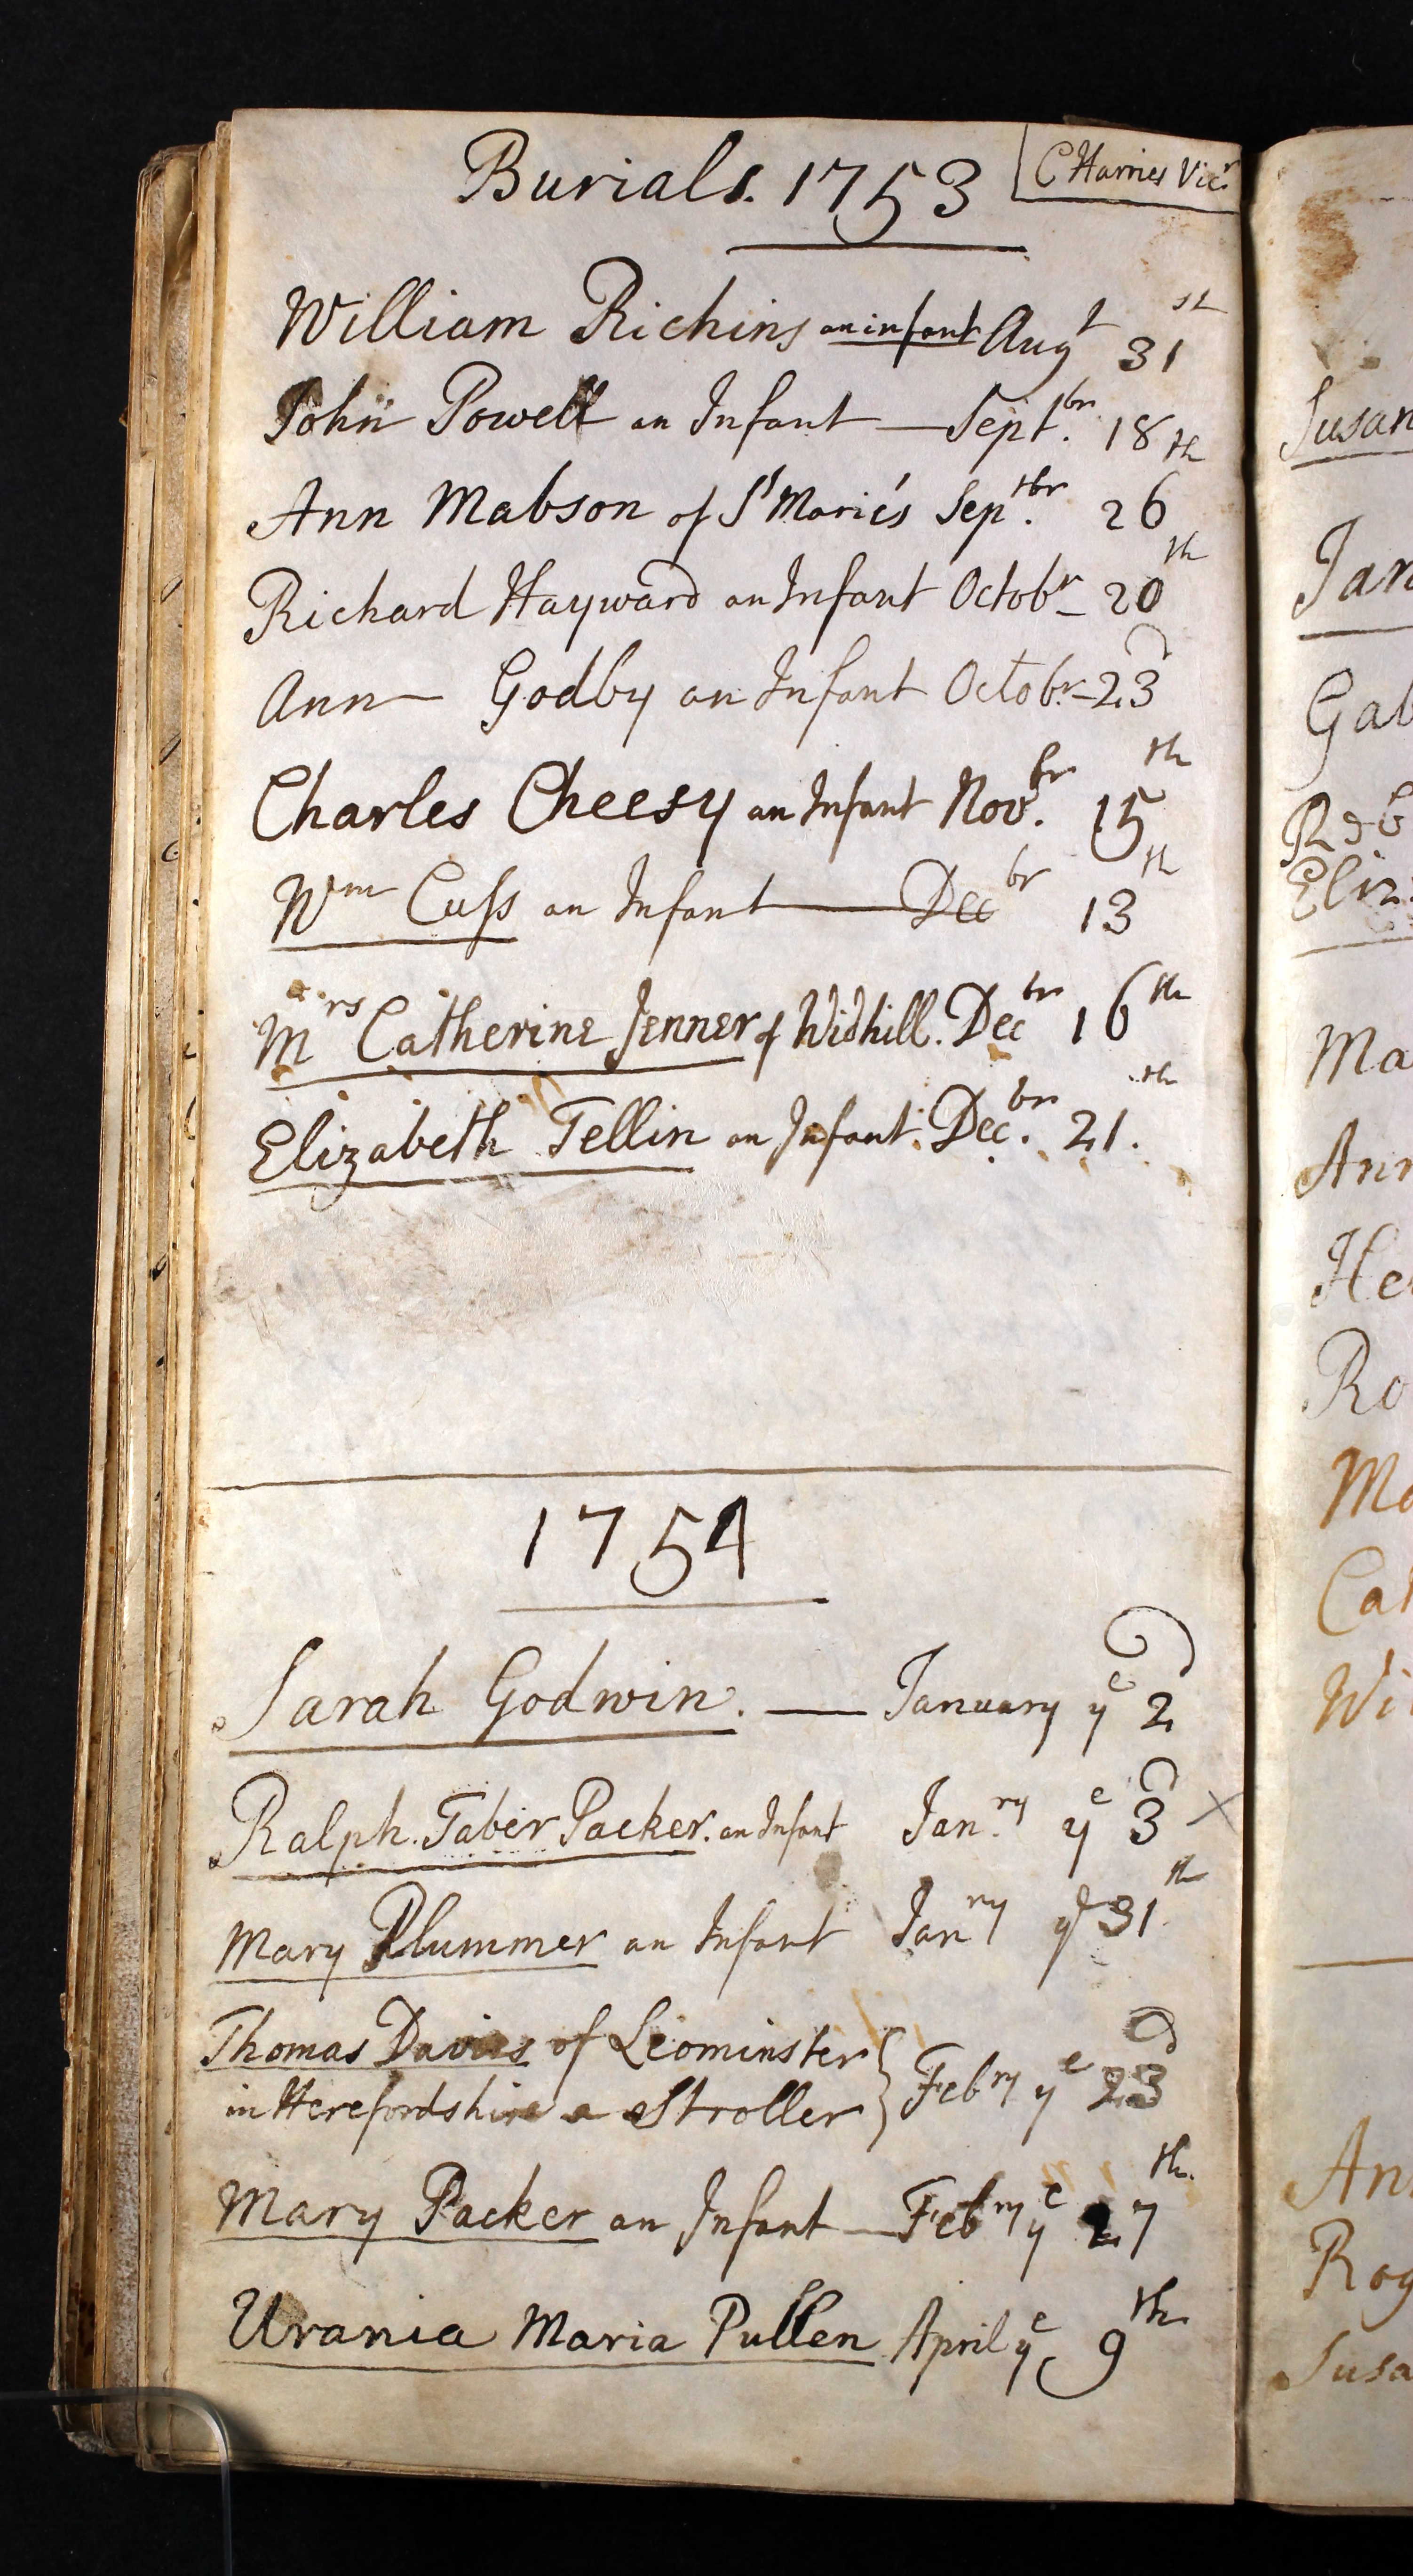 Burials. 1753
C Harries Vicr
William Richins an infant Augt 31st
John Powell an Infant — Septbr. 18th
Ann Mabson of St Marie's Septbr. 26th
Richard Hayward an Infant Octobr 20th
Ann — Godby an Infant Octobr. 23d
Charles Cheesy an Infant Novbr. 15th
Wm Cuss an Infant — Decbr 13th
Mrs Catherine Jenner of Widhill. Decbr 16th
Elizabeth Tellin an Infant. Decbr. 21th.
1754
Sarah Godwin. — January ye 2d
Ralph. Taber Packer. an Infant Janry ye 3d X
Mary Plummer an Infant Janry ye 31th
Thomas Davies of Leominster
in Herefordshire a Stroller } Febry ye 23d
Mary Packer an Infant — Febry ye 27th.
Urania Maria Pullen April ye 9th
Susan
Jan
Gab
Rob
Eliz
Ma
Ann
He
Ro
Ma
Cat
Wi
Ann
Rog
Susa